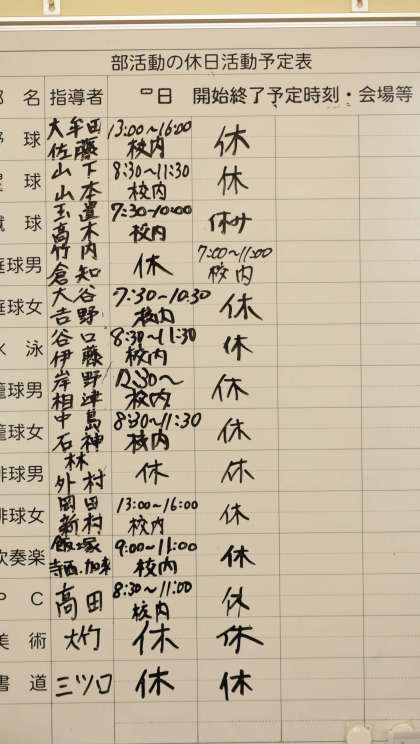 部活動の休日活動予定表
名 指導者 日 開始終了予定時刻・会場等
球 大牟田 佐藤 13:00~16:00 校内 休
球 山下 山本 8:30~11:30 校内 休
球 玉邉 高木 7:30~10:00 校内 休み
庭球男 竹内 倉知 休 7:00~11:00 校内
庭球女 大谷 吉野 7:30~10:30 校内 休
泳 谷口 伊藤 8:30~11:30 校内 休
籠球男 岸野 相津 12:30~ 校内 休
籠球女 中島 石神 8:30~11:30 校内 休
排球男 林 外村 休 休
排球女 岡田 新村 13:00~16:00 校内 休
吹奏楽 飯塚 寺西.加来 9:00~11:00 校内 休
P C 高田 8:30~11:00 校内 休
美術 大竹 休 休
書道 三ツ口 休 休